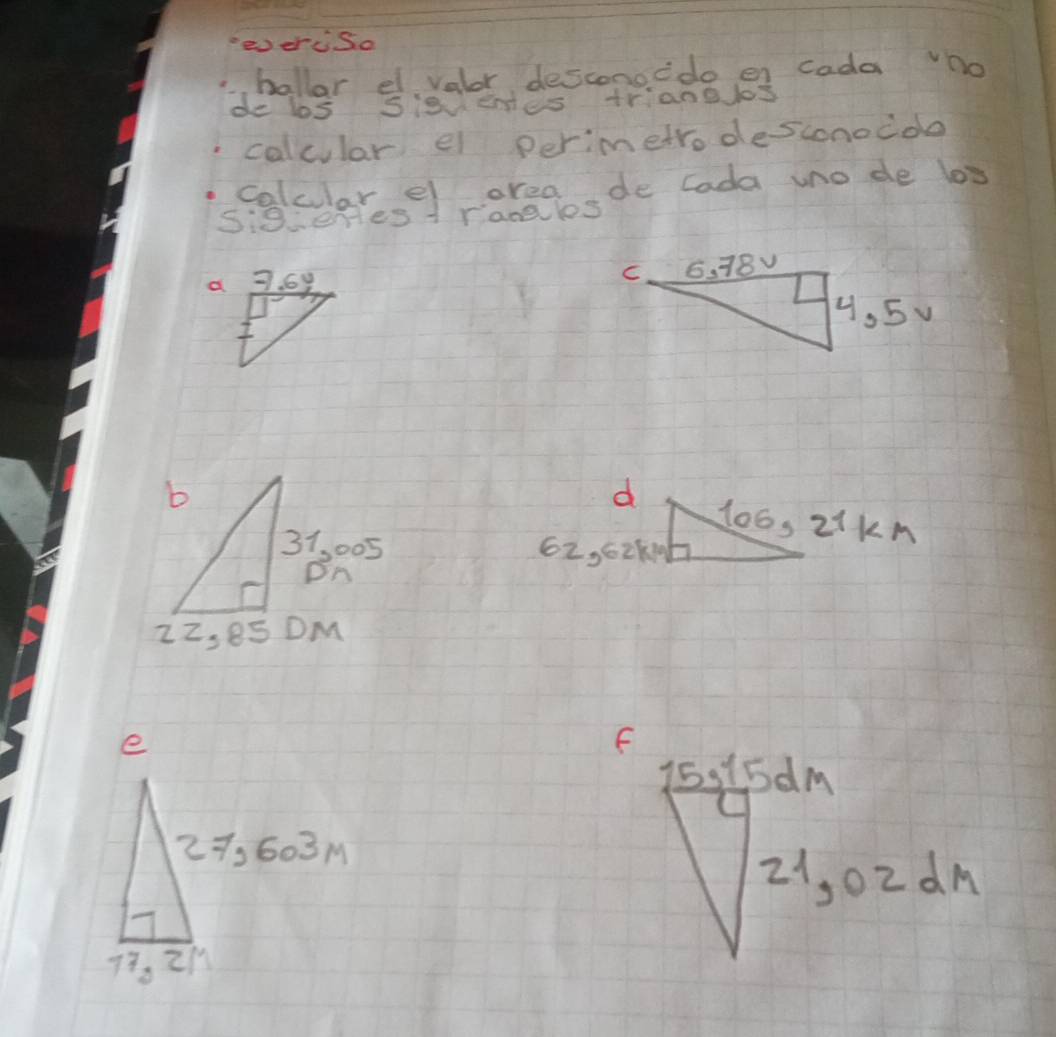 exerciso
hallar el valor desconocido en cada uno
de los siguientes triangulos
calcular el perimetro desconocido
calcular el area de cada uno de los
siguientes triangulos
a 7,6y
c 6,78v
4,5v
b
31,005
Dn
22,85 DM
d
106,21km
62,62km
e
27,603M
17,2M
F
15,15dm
21,02dm